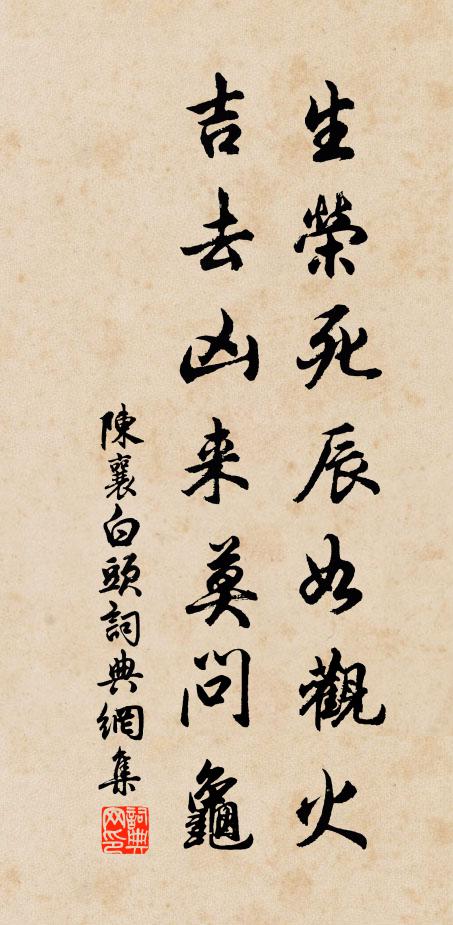 生榮死辰如觀火
吉去凶来莫問龜
陳襄白頭詞典網集
詞典网印